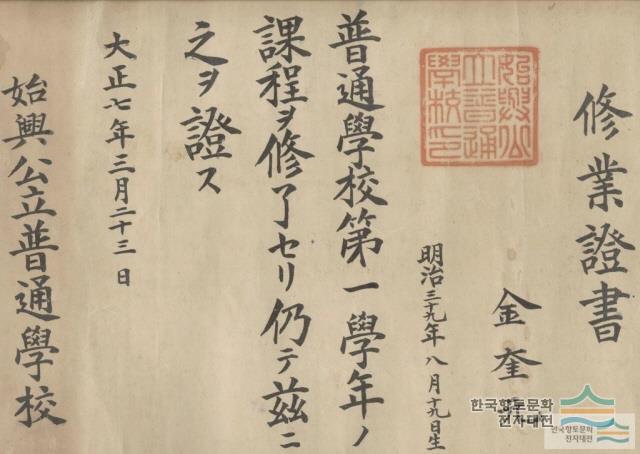 修業證書
金奎
明治三十九年八月十九日生
始興公立普通學校印
普通學校第一學年ノ
課程ヲ修了セリ仍テ茲ニ
之ヲ證ス
大正七年三月二十三日
始興公立普通學校
한국향토문화
전자대전
한국향토문화
전자대전